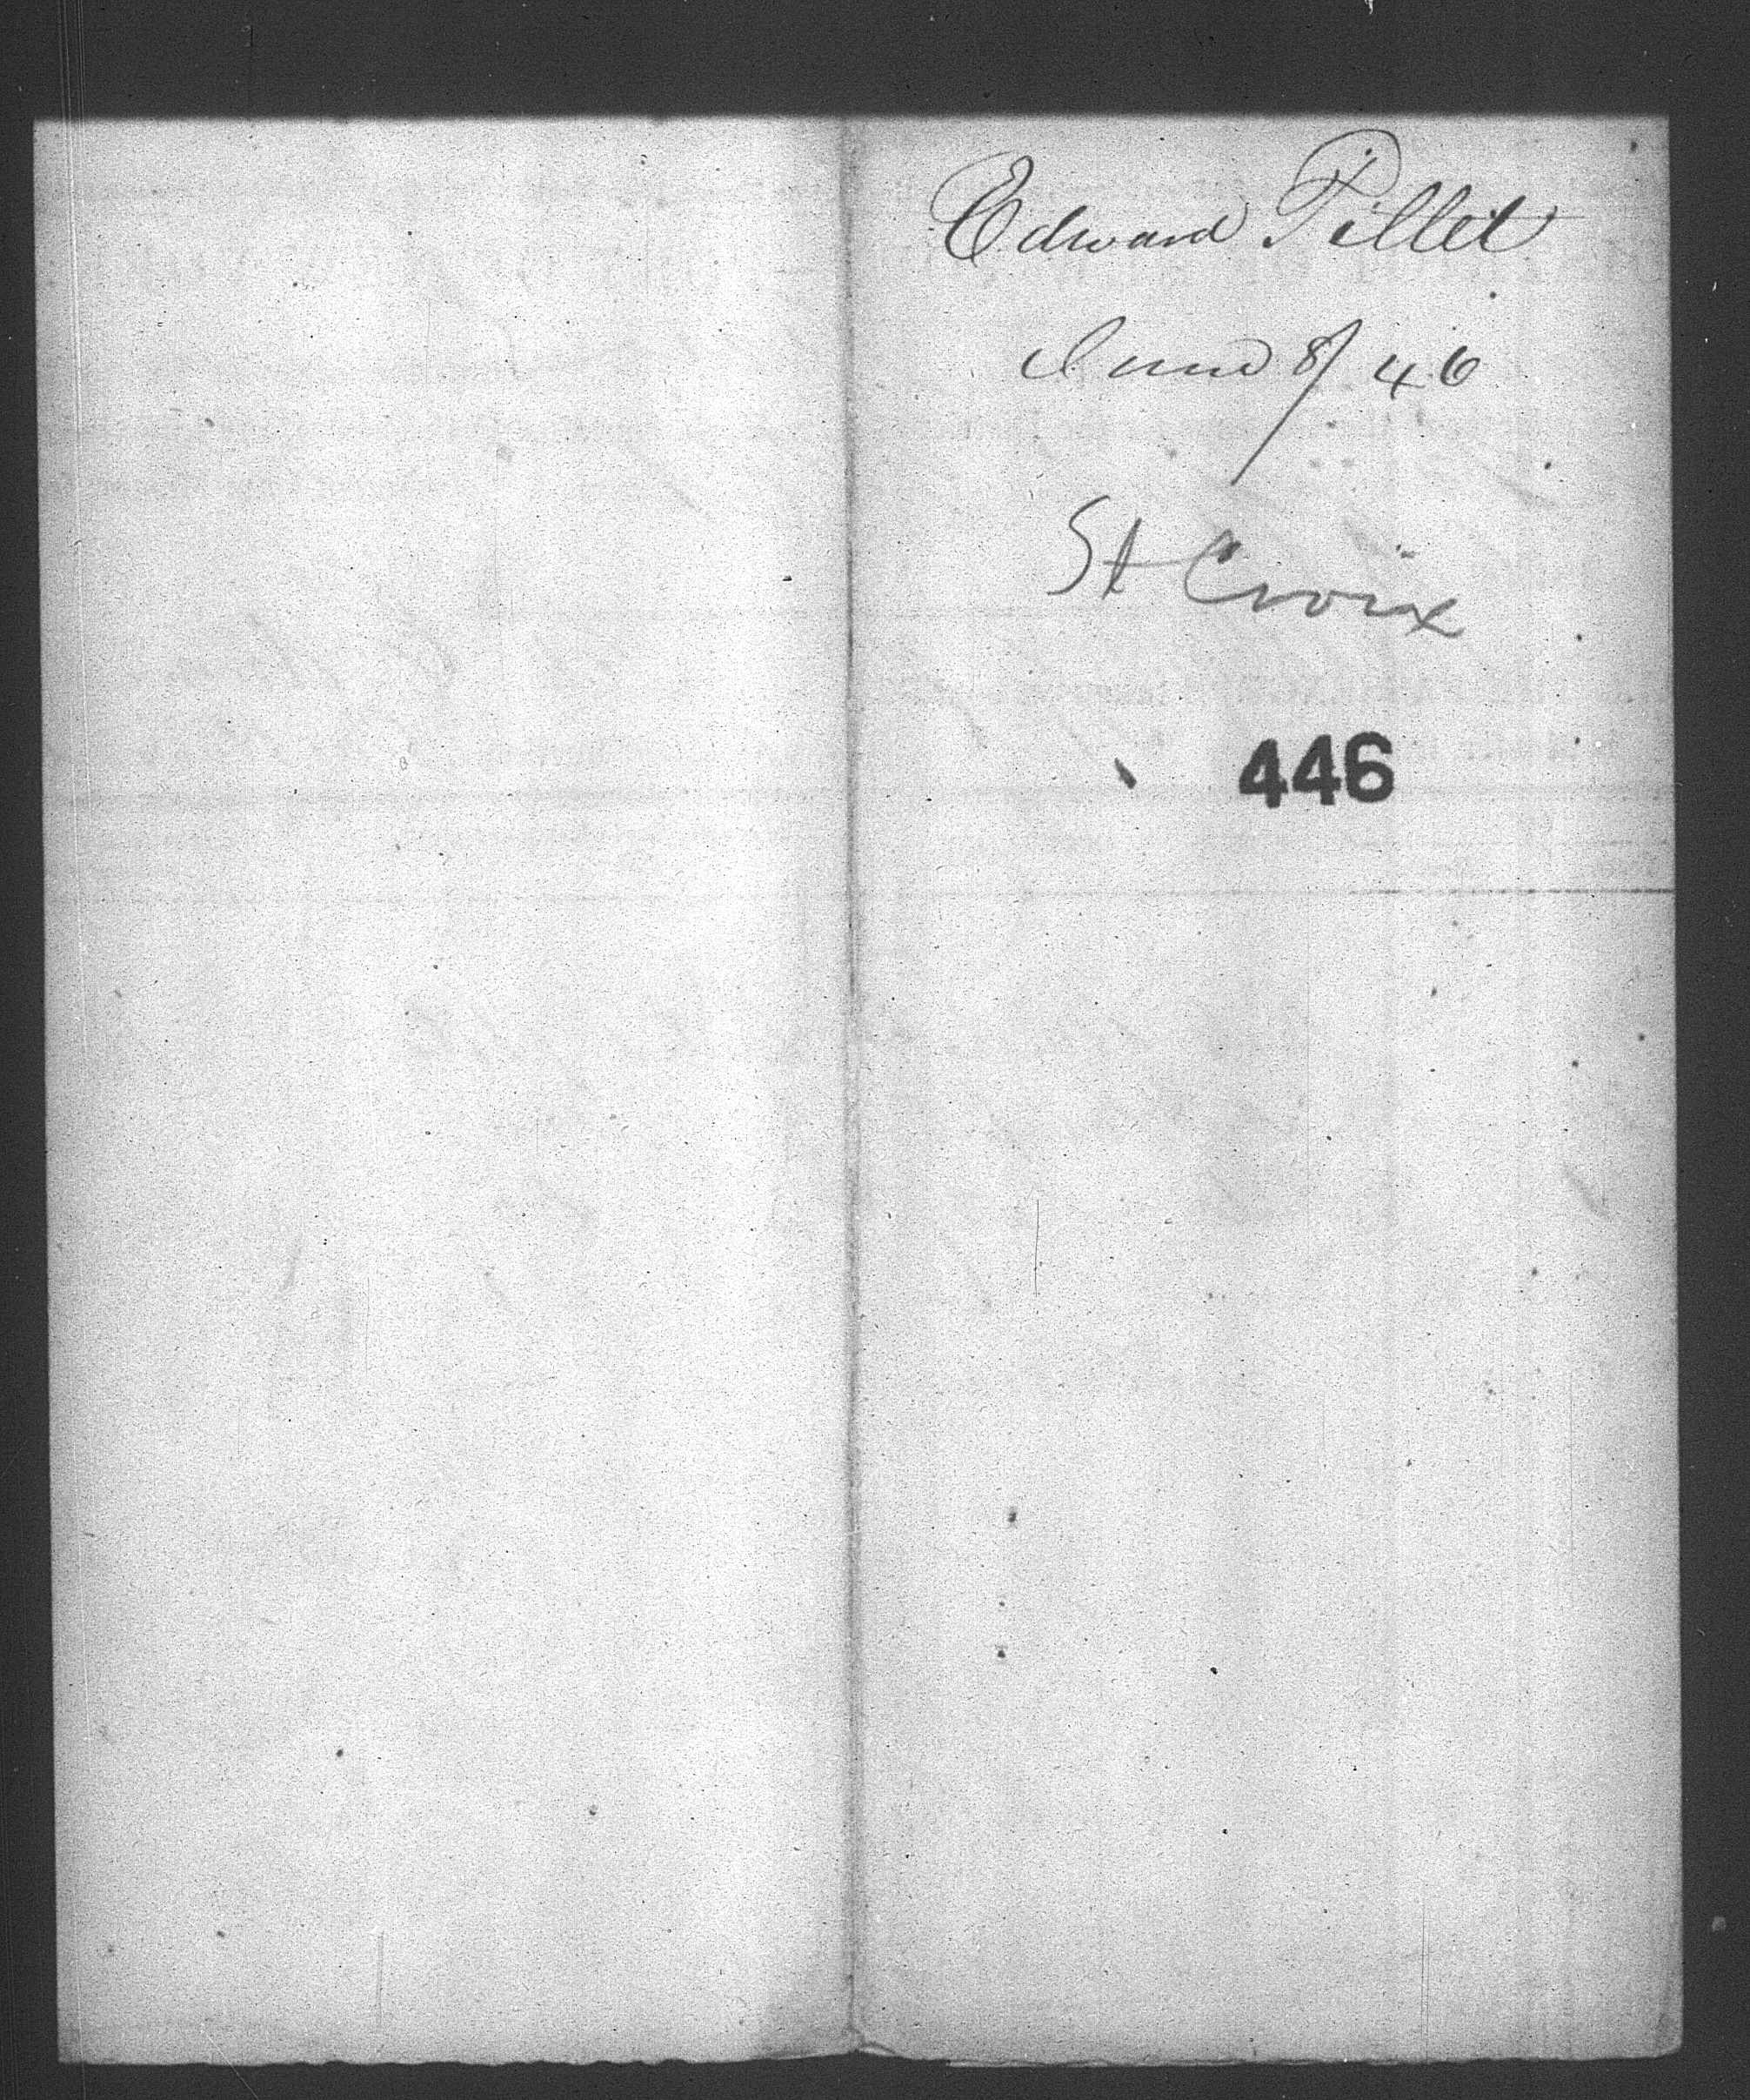 Edward Pillet
June 8/46
St Croix
446